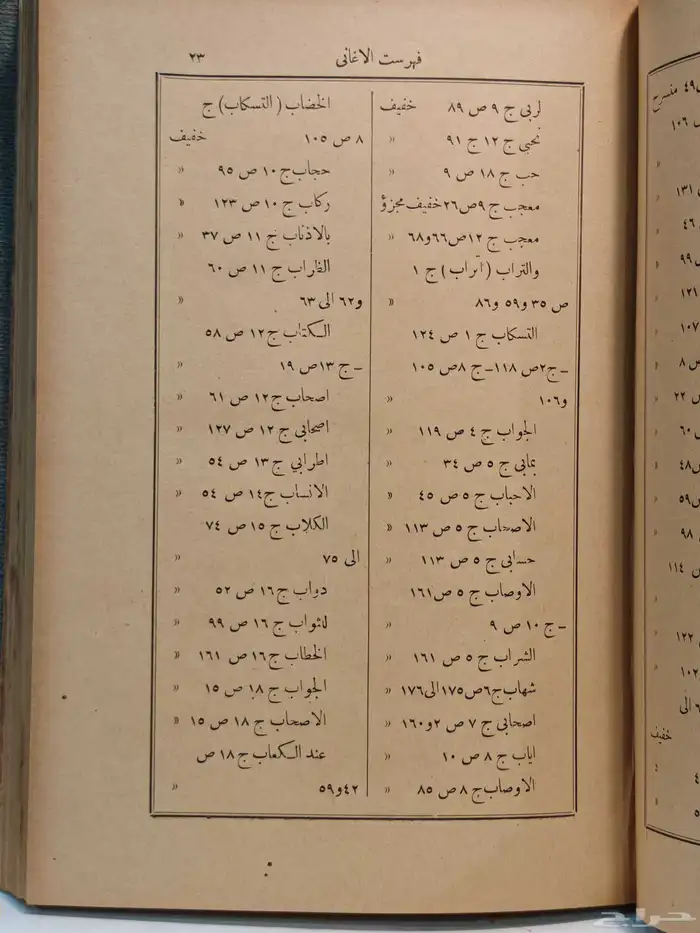 فهرست الاغانى
٢٣
لربى ج ٩ ص ٨٩ خفيف
نحبى ج ١٢ ج ٩١ »
حب ج ١٨ ص ٩ »
معجب ج ٩ ص ٢٦ خفيف مجزؤ
معجب ج ١٢ ص ٦٦ و ٦٨ »
والتراب ( أتراب ) ج ١
ص ٣٥ و ٥٩ و ٨٦ »
التسكاب ج ١ ص ١٢٤
ـ ج ٢ ص ١١٨ ـ ج ٨ ص ١٠٥
و ١٠٦ »
الجواب ج ٤ ص ١١٩ »
بمابى ج ٥ ص ٣٤ »
الاحباب ج ٥ ص ٤٥ »
الاصحاب ج ٥ ص ١١٣ »
حسابى ج ٥ ص ١١٣ »
الاوصاب ج ٥ ص ١٦١
ـ ج ١٠ ص ٩ »
الشراب ج ٥ ص ١٦١ »
شهاب ج ٦ ص ١٧٥ الى ١٧٦ »
اصحابى ج ٧ ص ٢ و ١٦٠ »
اياب ج ٨ ص ١٠ »
الاوصاب ج ٨ ص ٨٥ »
الخضاب ( التسكاب ) ج
٨ ص ١٠٥ خفيف
حجاب ج ١٠ ص ٩٥ »
ركاب ج ١٠ ص ١٢٣ »
بالاذناب ج ١١ ص ٣٧ »
القراب ج ١١ ص ٦٠
و ٦٢ الى ٦٣ »
الكتاب ج ١٢ ص ٥٨
ـ ج ١٣ ص ١٩ »
اصحاب ج ١٢ ص ٦١ »
اصحابى ج ١٢ ص ١٢٧ »
اطرابي ج ١٣ ص ٥٤ »
الانساب ج ١٤ ص ٥٤ »
الكلاب ج ١٥ ص ٧٤
الى ٧٥ »
دواب ج ١٦ ص ٥٢ »
لثواب ج ١٦ ص ٩٩ »
الخطاب ج ١٦ ص ١٦١ »
الجواب ج ١٨ ص ١٥ »
الاصحاب ج ١٨ ص ١٥ »
عند الكعاب ج ١٨ ص
٤٢ و ٥٩ »
حراج